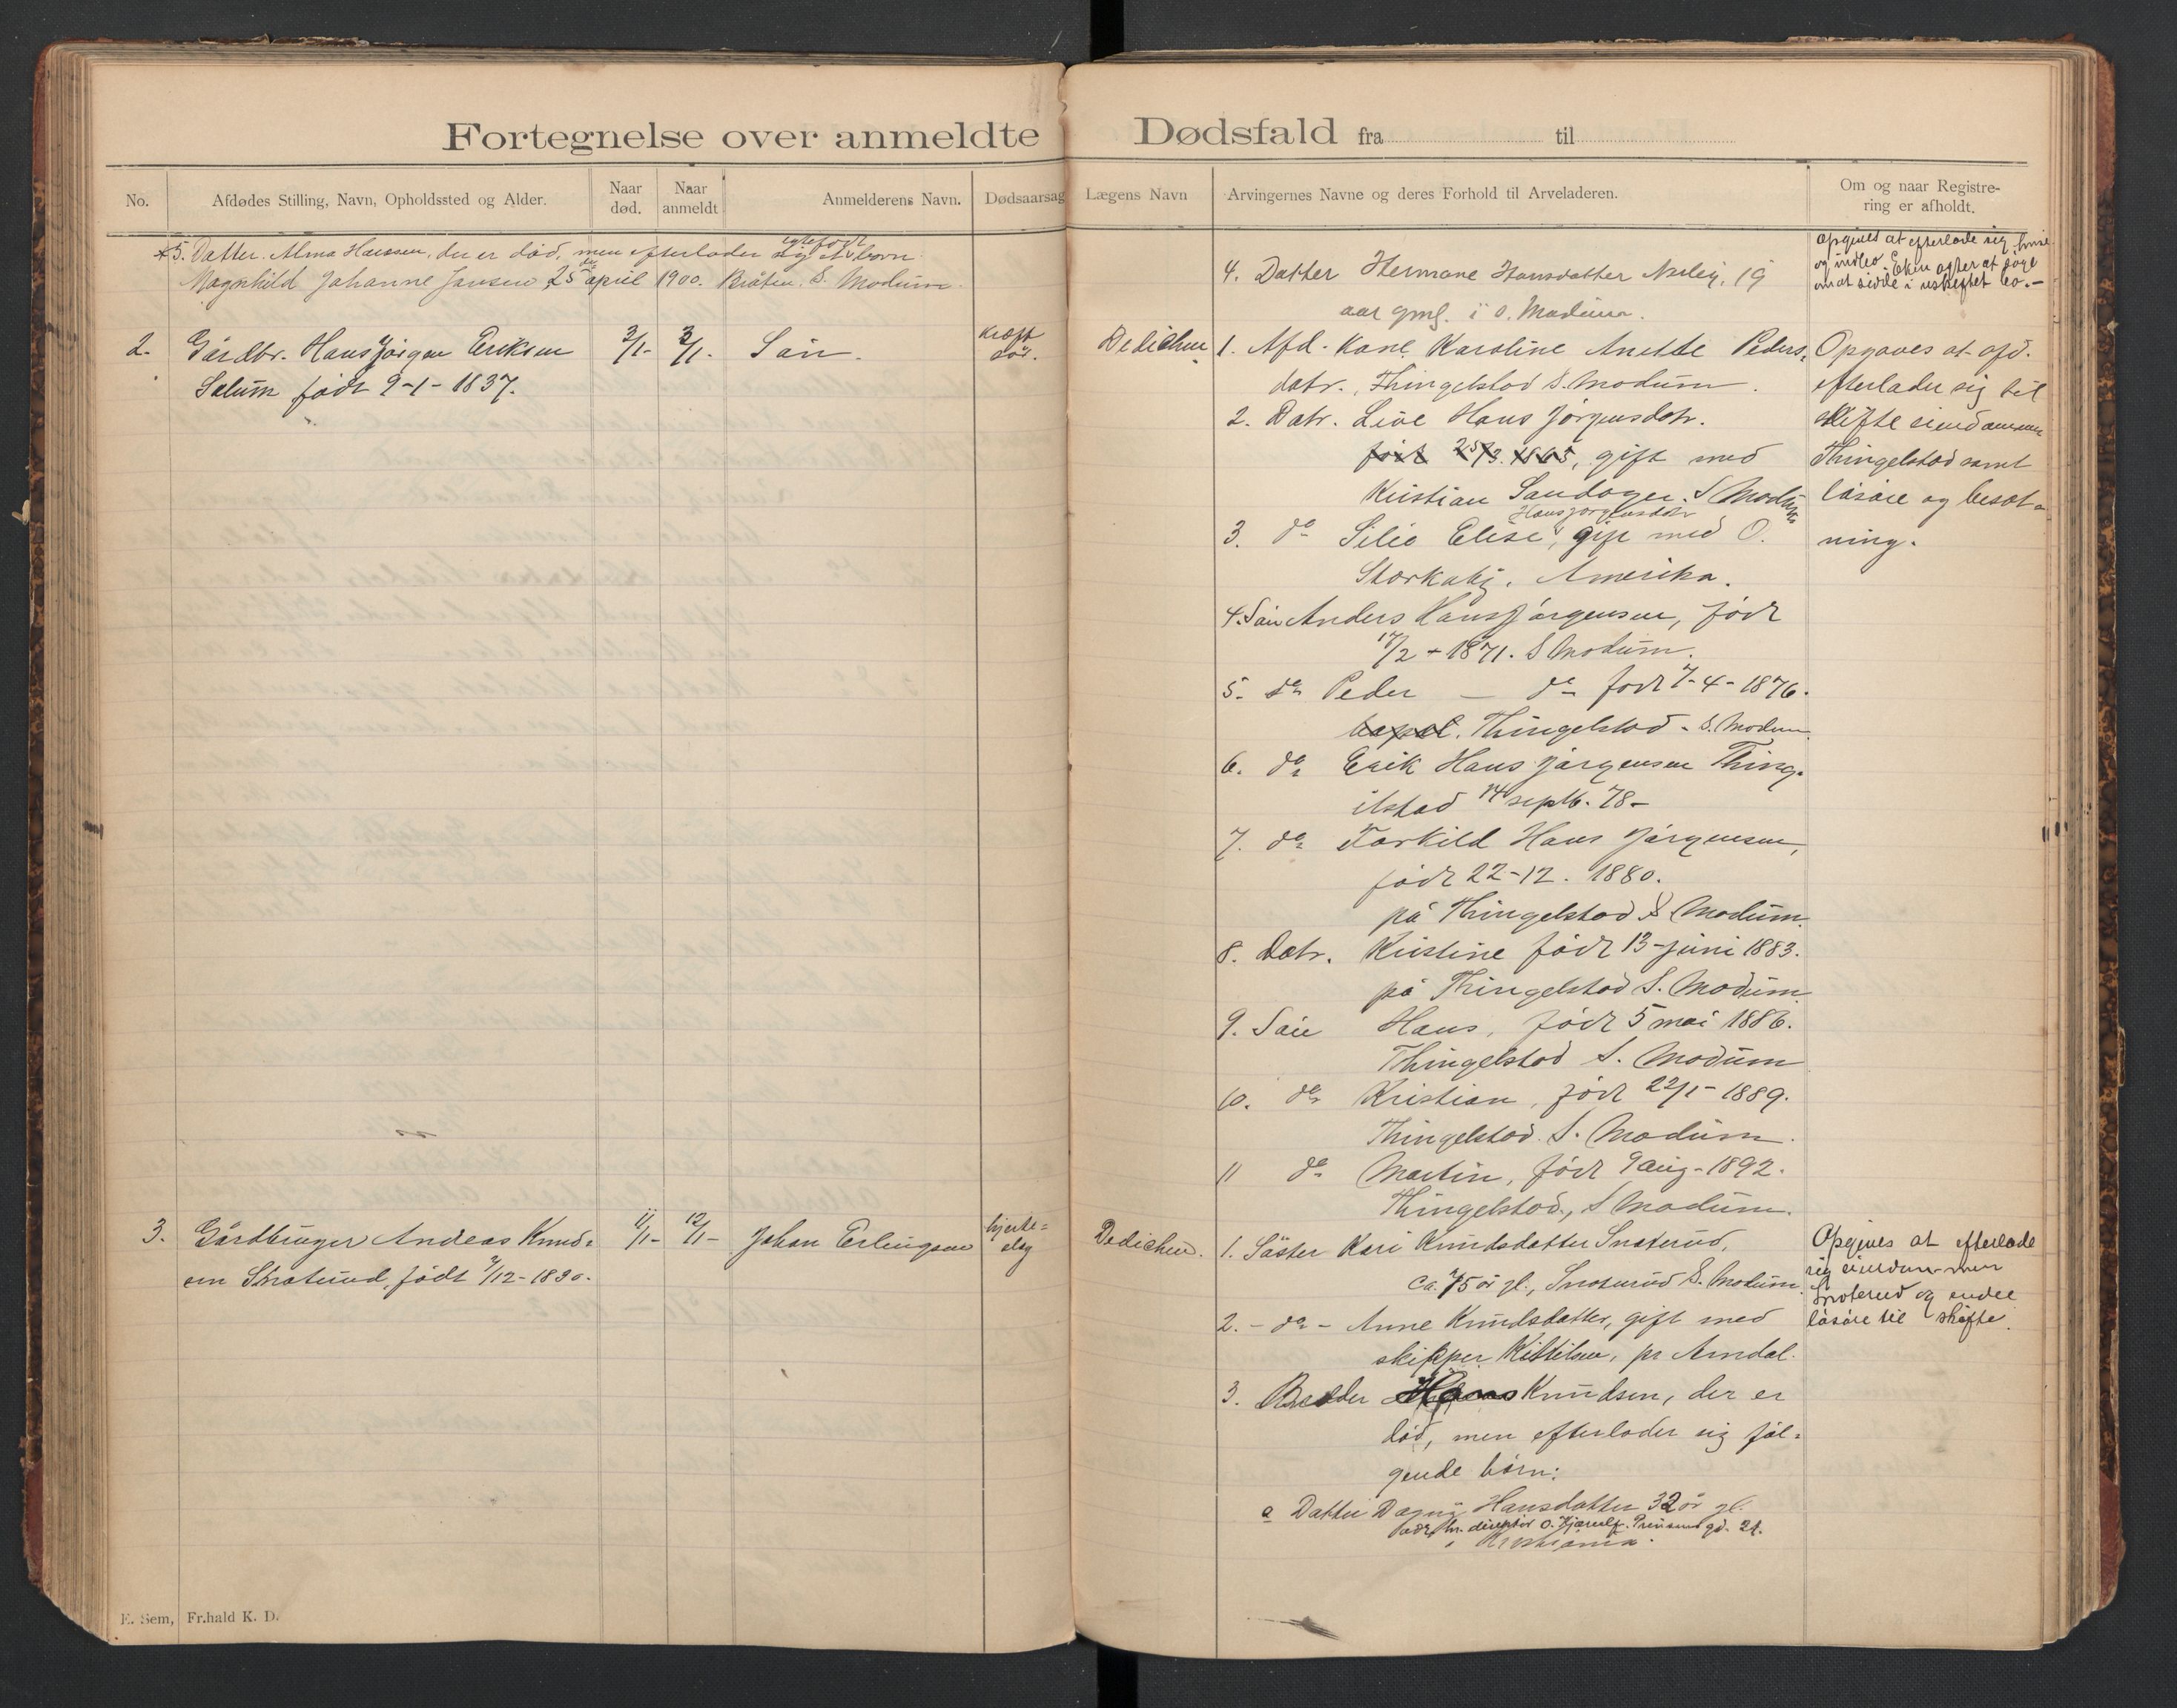 Fortegnelse over anmeldte Dødsfald fra til
No.
Afdødes Stilling, Navn, Opholdssted og Alder.
Naar død.
Naar anmeldt
Anmelderens Navn.
Dødsaarsag
Lægens Navn
Arvingernes Navne og deres Forhold til Arveladeren.
Om og naar Registre-
ring er afholdt.
*5. Datter. Alma Hanssen, der er død, men efterlader sig et egtefødt barn
Magnhild Johanne Jansen 25de april 1900. Bråten, S. Modum.
4. Datter Hermane Hansdatter 19
aar gml. i S. Modum.
opgives at efterlade sig
og indbo
om at sidde i uskiftet bo.-
2. Gårdbr. Hans Jörgen Eriksen 3/1- 3/1. Sön. Kræft Dedichen
Sælum født 9-1-1837.
1. Afd. Kone Karoline Anette Peders-
datr., Thingelstad S. Modum.
2. Datr. Live Hans Jörgensdatr.
født 25/3. 1865, gift med
Kristian Sandager. S Modum
3. do Silie Elise Hansjörgensdatr, gift med O.
Storkabj. Amerika.
4. Sön Anders Hansjörgensen, född
17/2 - 1871. S Modum.
5. do Peder — do född 7-4-1876.
Thingelstad - S. Modum.
6. do Erik Hans Jörgensen Thing-
elstad 14 septb. 78-
7. do Torkild Hans Jörgensen,
född 22-12. 1880.
på Thingelstad S Modum.
8. Datr. Kristine född 13-juni 1883.
på Thingelstad S. Modum.
9. Sön Hans, född 5 mai 1886.
Thingelstad S. Modum
10. do Kristian, född 22/1-1889.
Thingelstad. S. Modum.
11 do Martin, född 9 aug-1892.
Thingelstad., S Modum.
Opgaves at afd.
efterlader sig til
skifte eiendommen
Thingelstad samt
lösöre og besæt-
ning.
3. Gårdbruger Andreas Knud- 11/1- 12/1- Johan Erlingsen hjerte= Dedichen.
sen Snarud, født /12-1830. slag
1. Söster Kari Knudsdatter Snaterud,
ca. 75 år gl., Snoterud S. Modum.
2. - do - Anne Knudsdatter, gift med
skipper Kittilsen, pr Arndal.
3. Broder Hans Knudsen, der er
död, men efterlader sig föl-
gende börn:
a Datter Dagny Hansdatter 32 år gl.
adr. hr. direktör O. Kjærulf. Prinsens gd. 21.
i Kristiania.
Opgives at efterlade
sig eiendommen
Snoterud og endel
lösöre til skifte.
E. Sem, Fr.hald K. D.